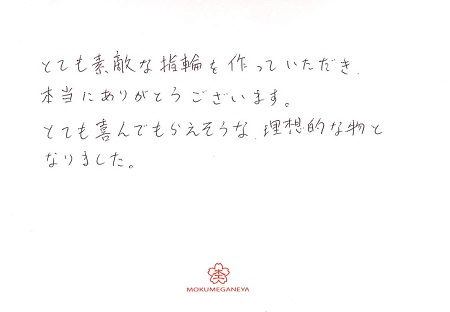 とても素敵な指輪を作っていただき、
本当にありがとうございます。
とても喜んでもらえそうな、理想的な物と
なりました。
MOKUMEGANEYA